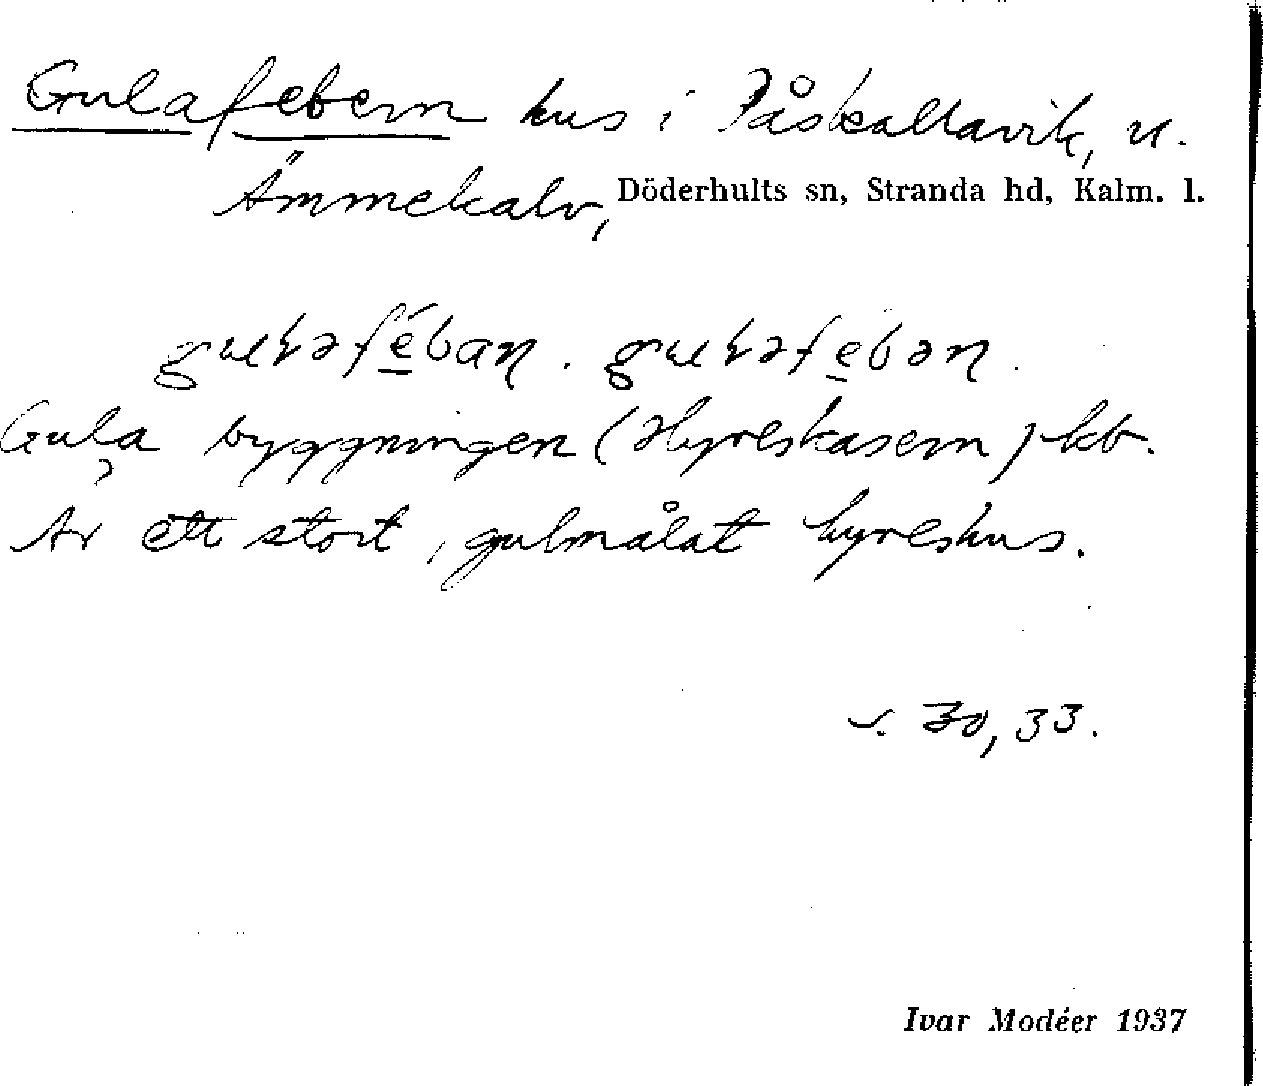 Gulafebern hus i Påskallavik, u.
Ämmekalv, Döderhults sn, Stranda hd, Kalm. l.
guɫəfe̲bəɳ. guɫəfe̲bəɳ.
Gula byggningen (Hyreskasern) kb.
Är ett stort, gulmålat hyreshus.
s. 30, 33.
Ivar Modéer 1937